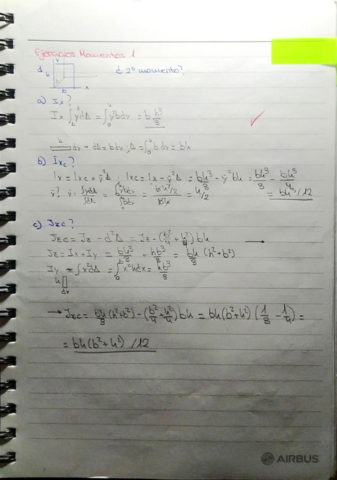 Ejercicios Momentos 1
d 2º momento?
a) Ix?
Ix = ∫y²dA = ∫y²bdx = b h³/3
dA = b dx, A = ∫b dx = bh
b) Ixc?
Ix = Ixc + ȳ²A ; Ixc = Ix - ȳ²A = bh³/3 - ȳ²bh = bh³/3 - bh³/4 = bh³/12
= h/2
c) Jzc?
Jzc = Jz - d²A = Jz - (h²/4 + b²/4) bh
Jz = Ix + Iy = bh³/3 + hb³/3 = bh/3 (h² + b²)
Iy = ∫x²dA = ∫x²hdx = hb³/3
→ Jzc = bh/3 (h² + b²) - (b²/4 + h²/4) bh = bh(b² + h²) (1/3 - 1/4) =
= bh(b² + h²) /12
AIRBUS